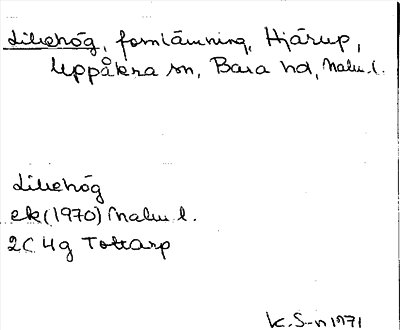 Lillehög, fornlämning, Hjärup,
Uppåkra sn, Bara hd, Malm.l.
Lillehög
ek (1970) Malm l.
2C 4g Tottarp
K. S-n 1971